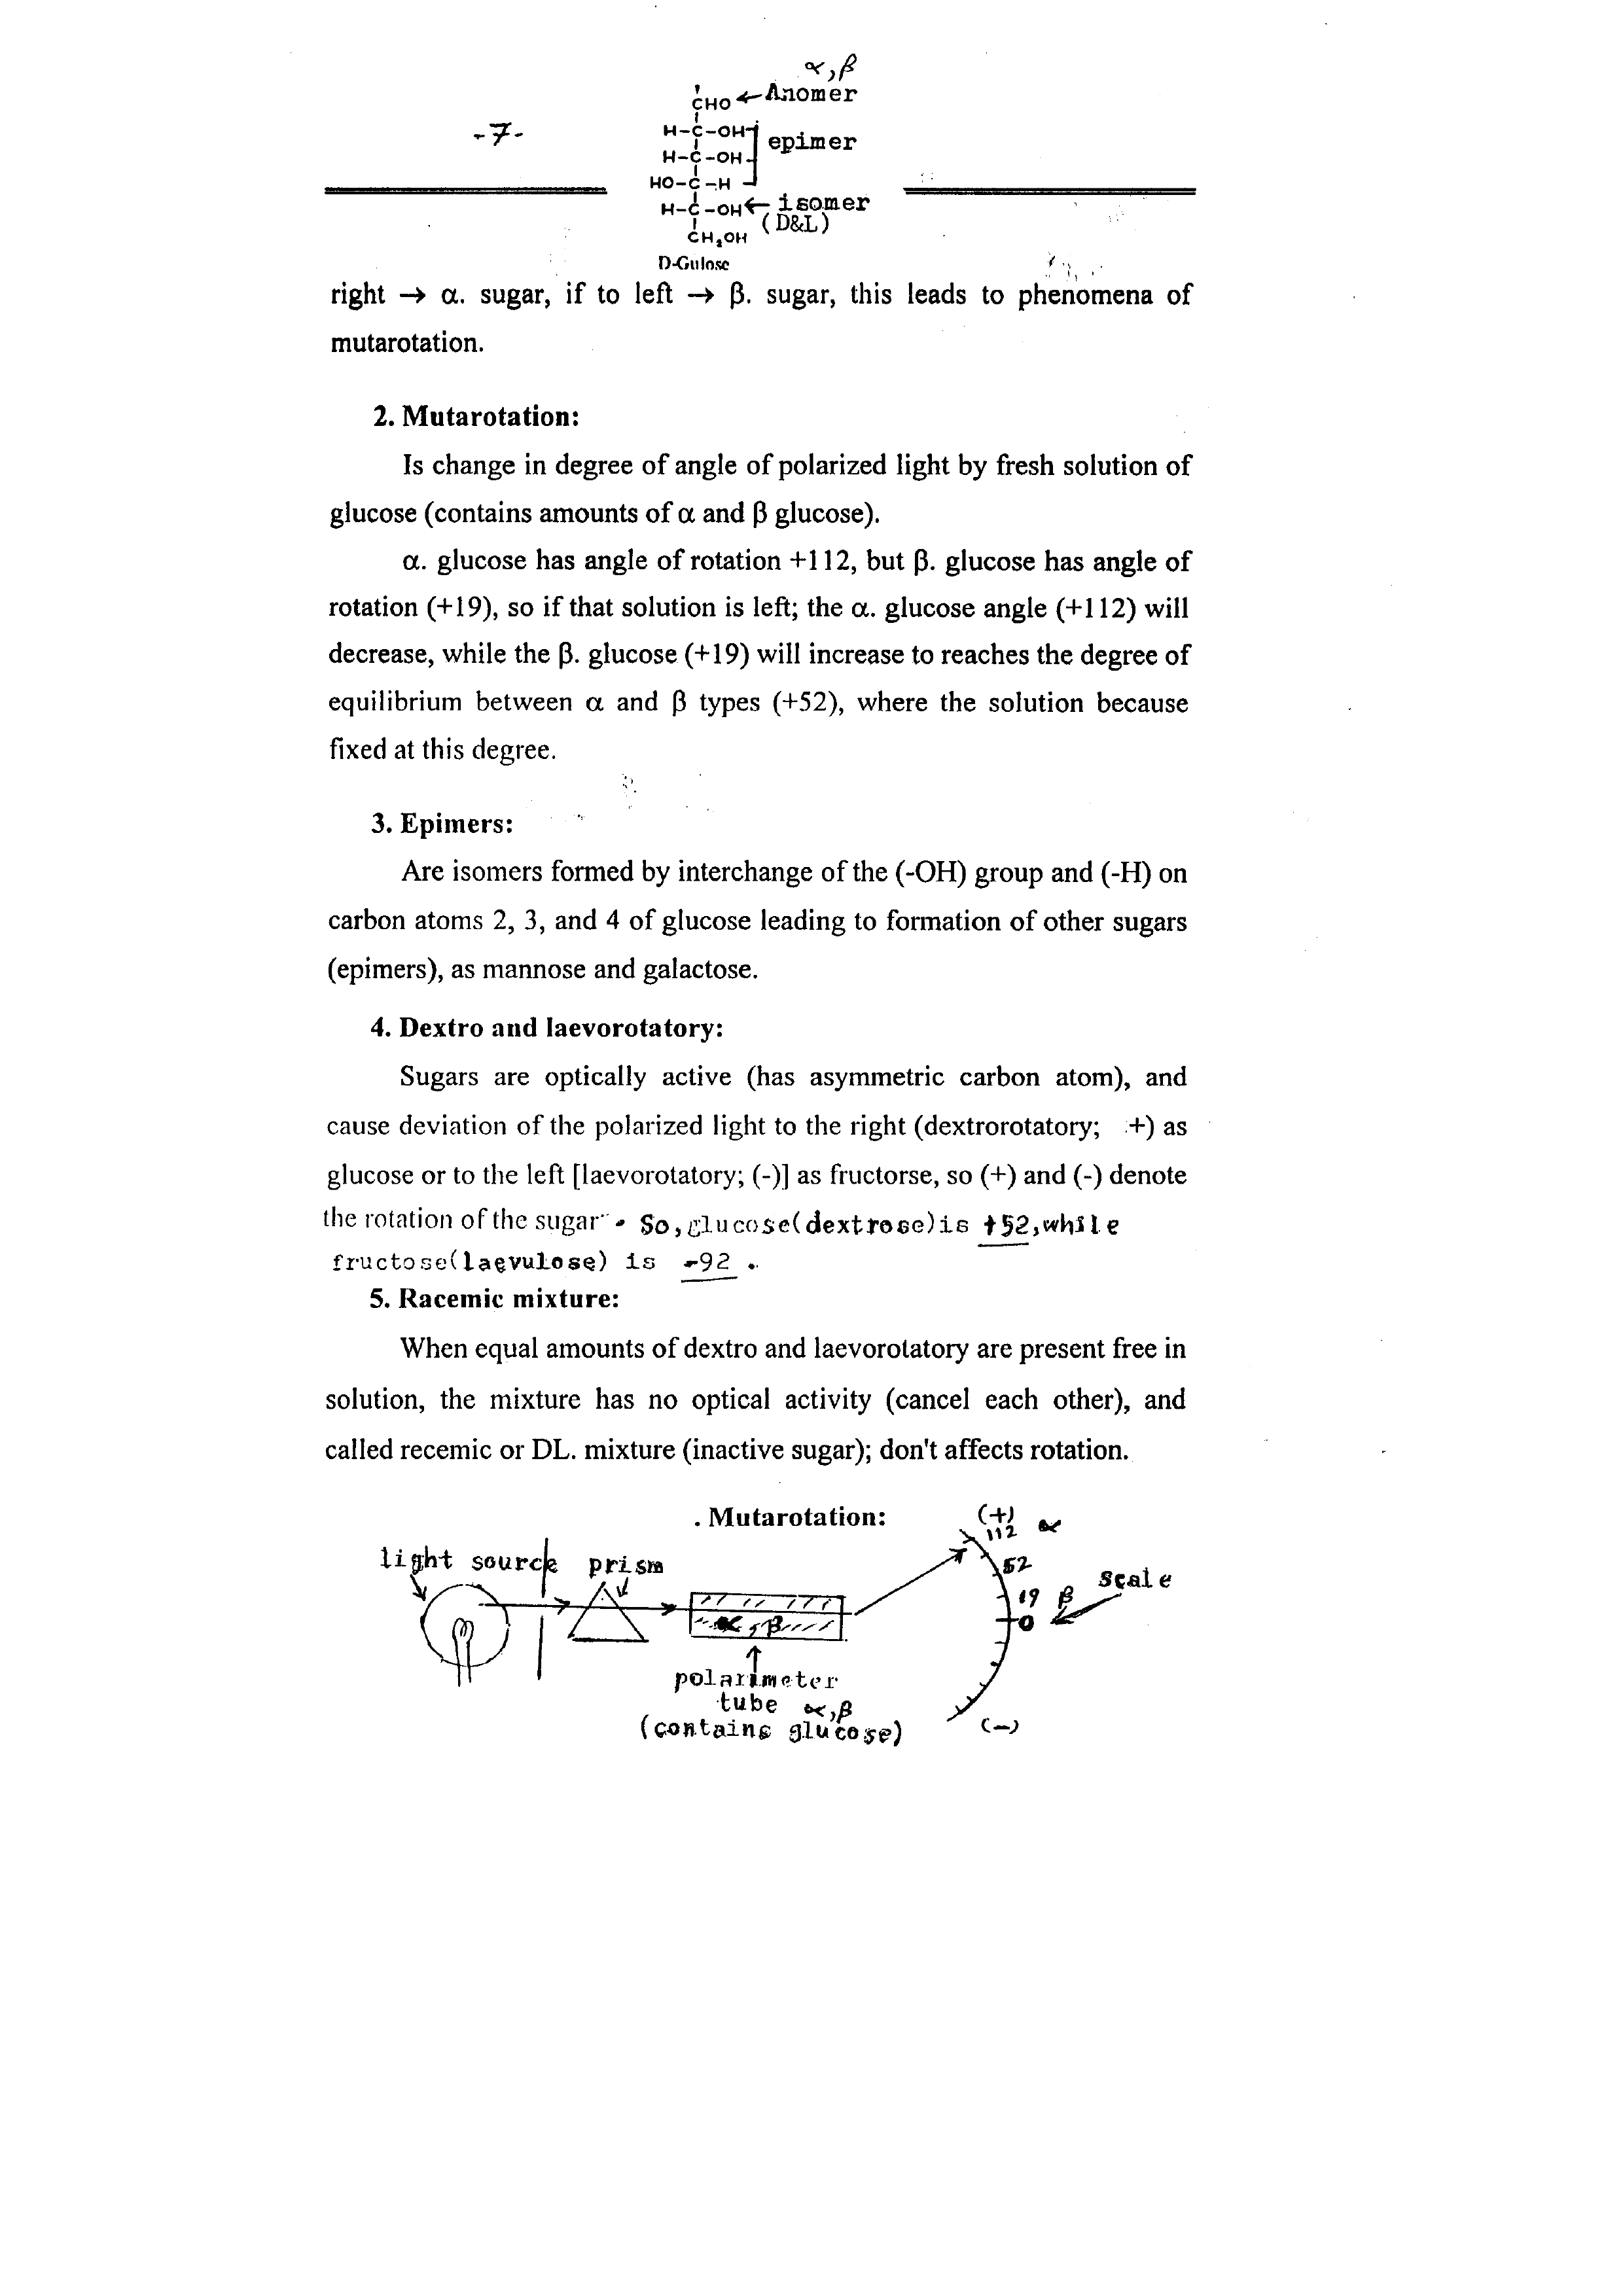 α,β
CHO ← Anomer
-7-
H-C-OH
epimer
H-C-OH
HO-C-H
H-C-OH ← isomer
(D&L)
CH₂OH
D-Gulose
right → α. sugar, if to left → β. sugar, this leads to phenomena of
mutarotation.
2. Mutarotation:
Is change in degree of angle of polarized light by fresh solution of
glucose (contains amounts of α and β glucose).
α. glucose has angle of rotation +112, but β. glucose has angle of
rotation (+19), so if that solution is left; the α. glucose angle (+112) will
decrease, while the β. glucose (+19) will increase to reaches the degree of
equilibrium between α and β types (+52), where the solution because
fixed at this degree.
3. Epimers:
Are isomers formed by interchange of the (-OH) group and (-H) on
carbon atoms 2, 3, and 4 of glucose leading to formation of other sugars
(epimers), as mannose and galactose.
4. Dextro and laevorotatory:
Sugars are optically active (has asymmetric carbon atom), and
cause deviation of the polarized light to the right (dextrorotatory; +) as
glucose or to the left [laevorotatory; (-)] as fructorse, so (+) and (-) denote
the rotation of the sugar. So, glucose(dextrose)is +52, while
fructose(laevulose) is -92 .
5. Racemic mixture:
When equal amounts of dextro and laevorotatory are present free in
solution, the mixture has no optical activity (cancel each other), and
called recemic or DL. mixture (inactive sugar); don't affects rotation.
. Mutarotation:
(+)
112 α
light source prism
52
scale
19 β
0
α, β
polarimeter
tube α,β
(contains glucose)
(-)